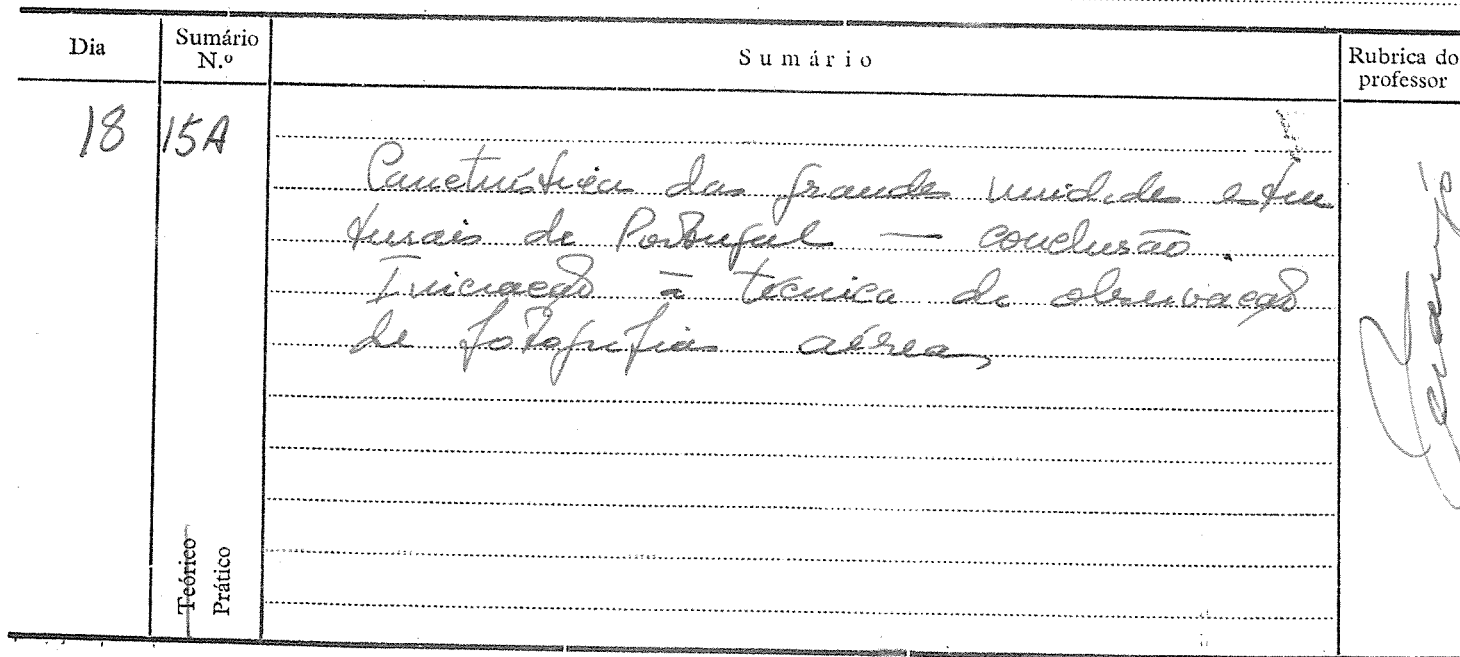 Dia
Sumário N.º
Sumário
Rubrica do professor
18 15A
Características das grandes unidades estru
turais de Portugal — conclusão.
Iniciação à técnica de observação
de fotografias aéreas
Teórico
Prático